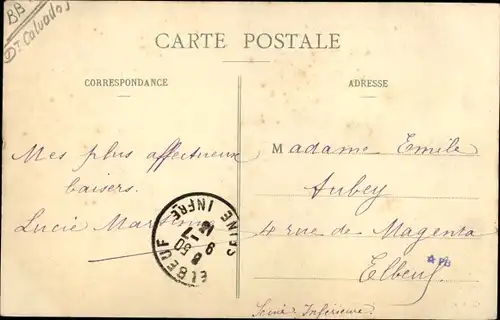 BB
Dt Calvados
CARTE POSTALE
CORRESPONDANCE
ADRESSE
Mes plus affectueux
baisers.
Lucie
Madame Emile
Aubey
4 rue de Magenta
Elbeuf
Seine Inférieure
ELBEUF
SEINE INFRE